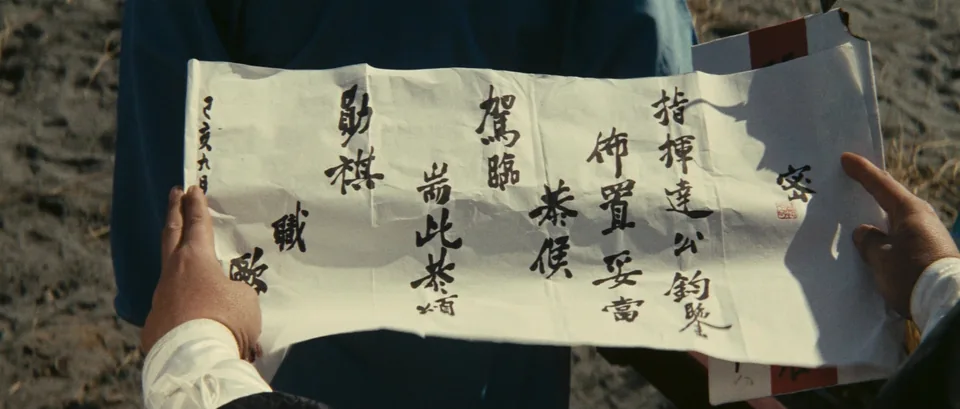 密
指揮達公鈞鑒
佈置妥當
恭候
駕臨
耑此恭頌
勛祺
職
歐
己亥九月